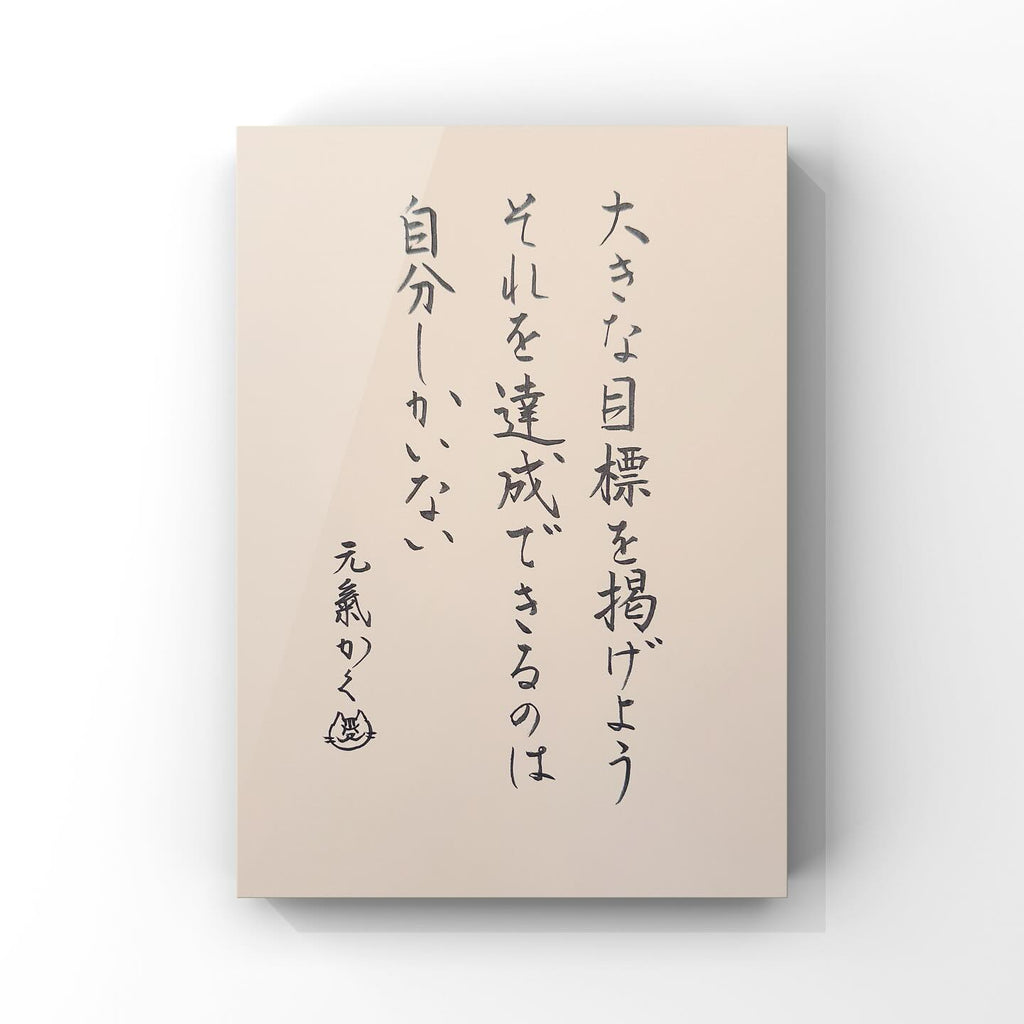 大きな目標を掲げよう
それを達成できるのは
自分しかいない
元氣かく